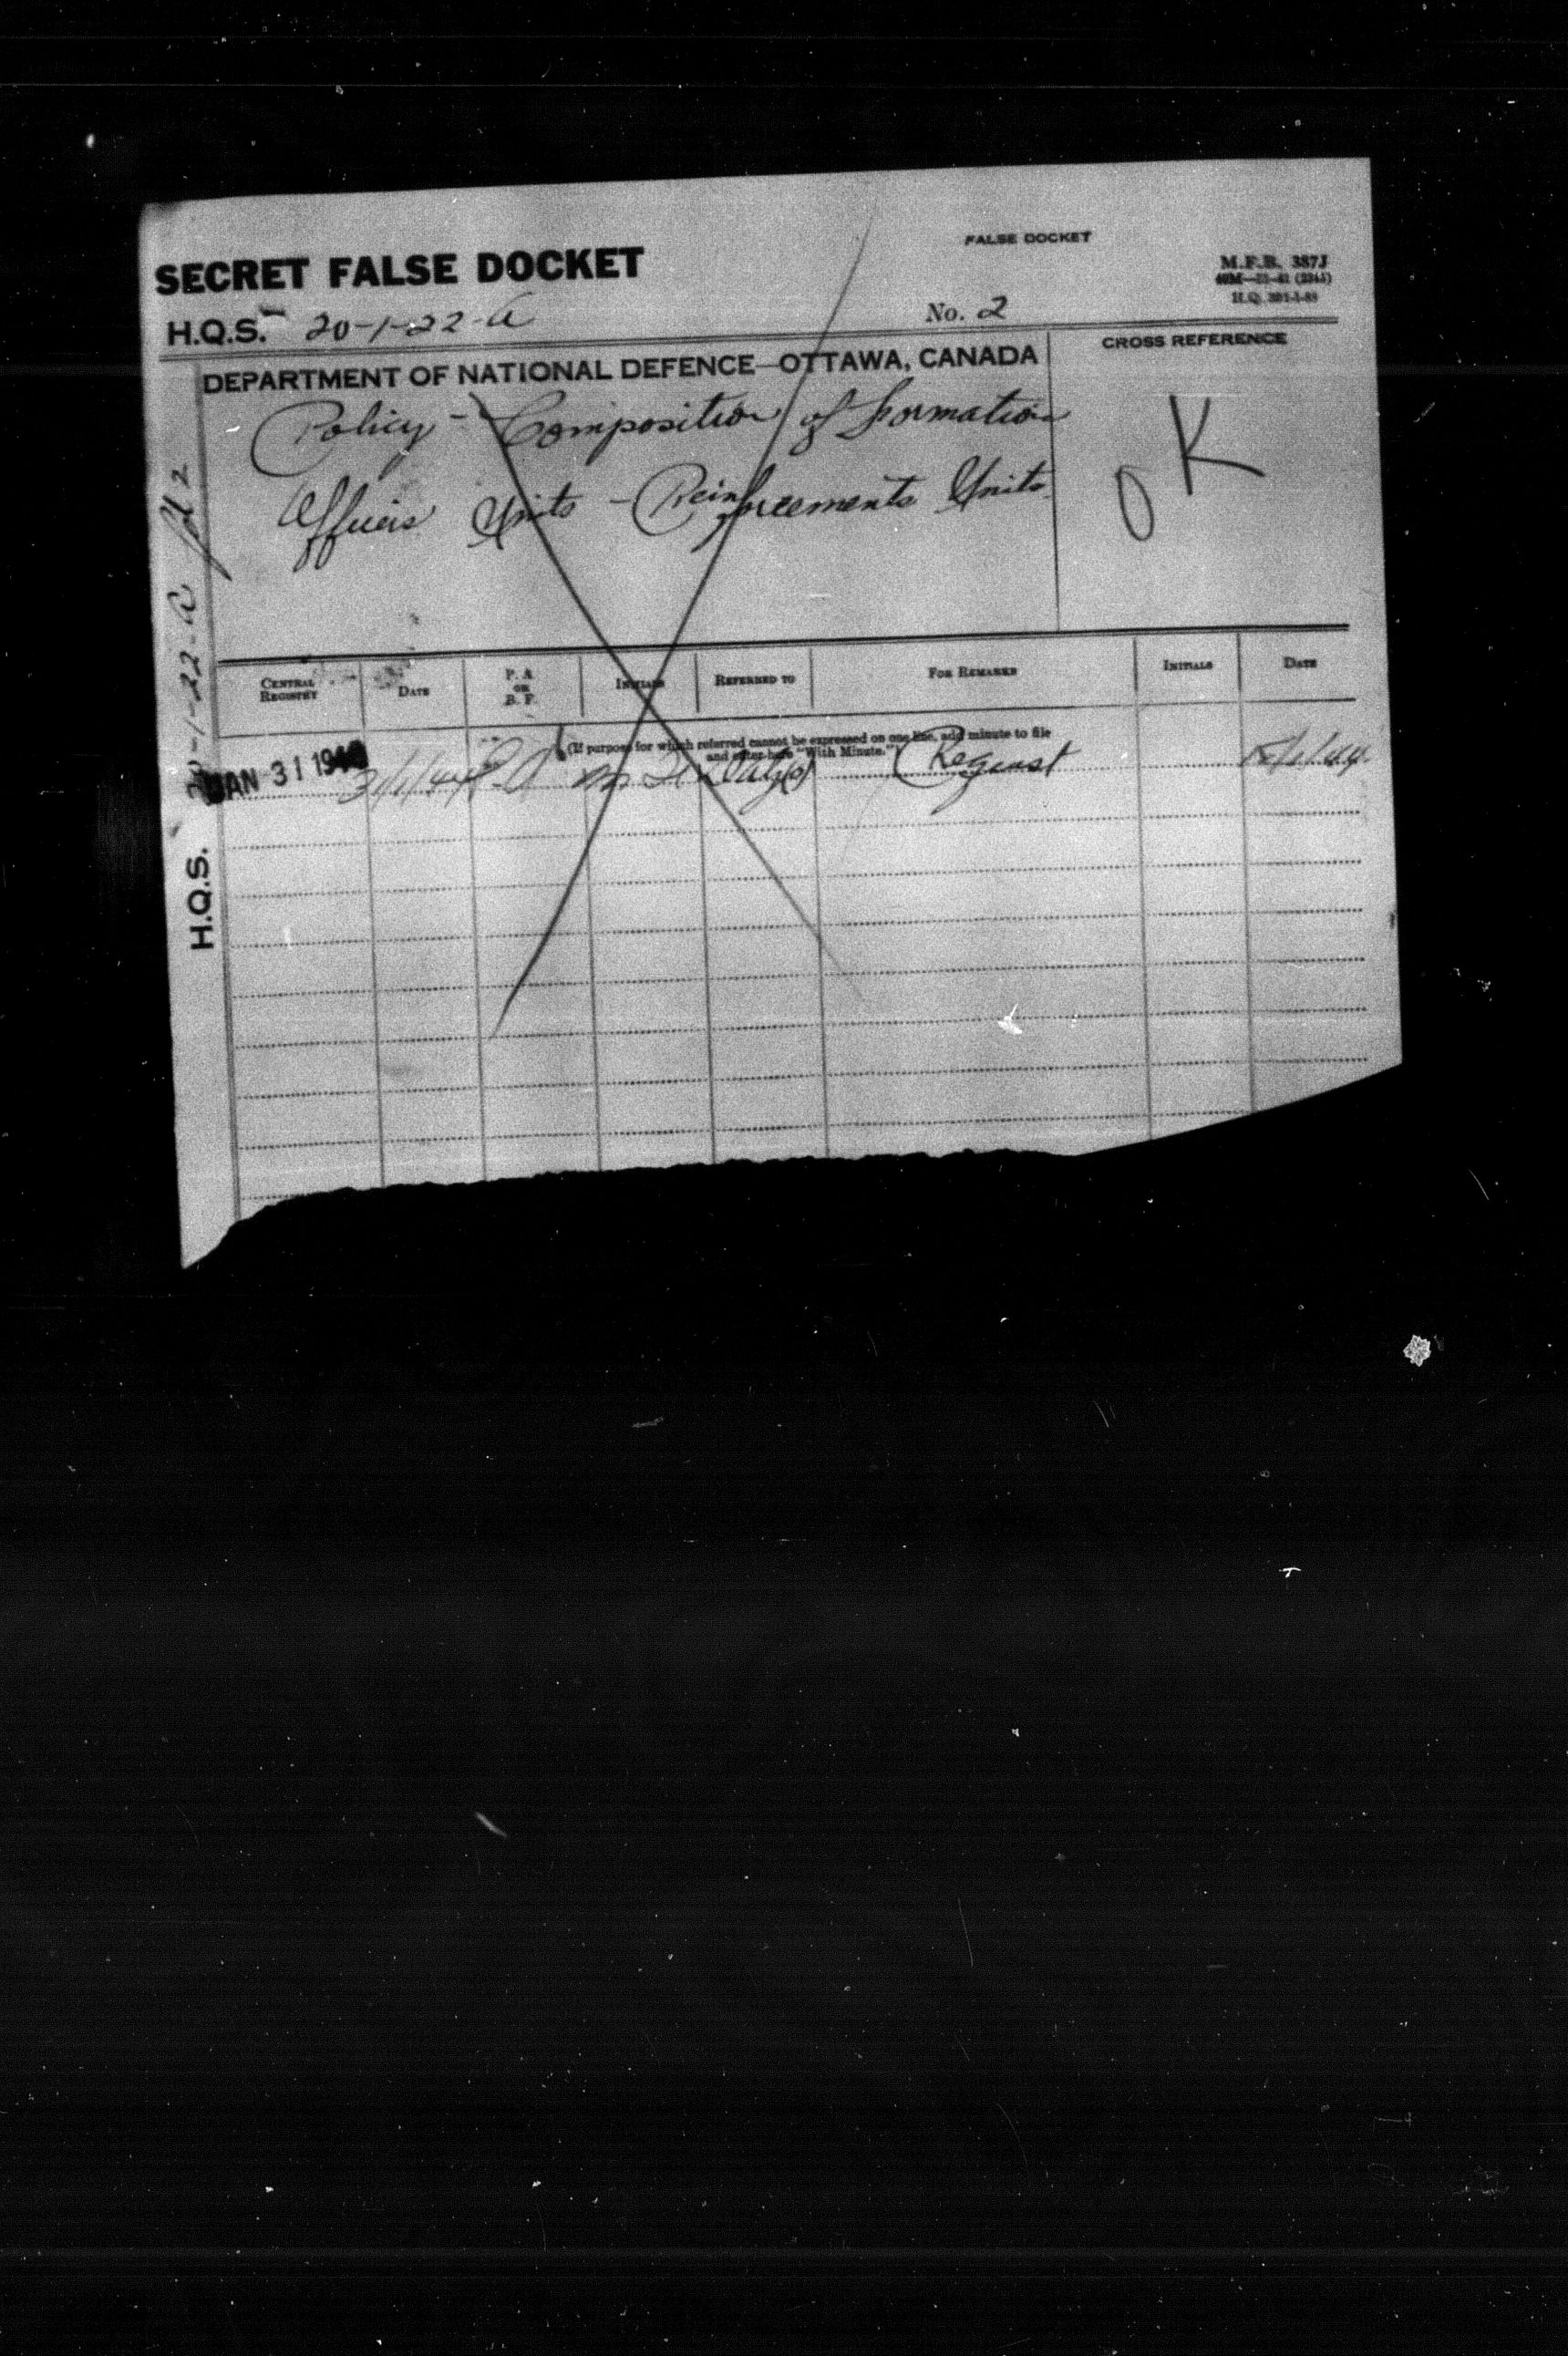 FALSE DOCKET
SECRET FALSE DOCKET
M.F.B. 387J
H.Q.S. 20-1-22-A
No. 2
DEPARTMENT OF NATIONAL DEFENCE—OTTAWA, CANADA
CROSS REFERENCE
Policy - Composition of Formation
Officers Units - Reinforcements Units
OK
CENTRAL REGISTRY
DATE
P. A. OR B. F.
INITIALS
REFERRED TO
FOR REMARKS
INITIALS
DATE
(If purpose for which referred cannot be expressed on one line, add minute to file
and enter here "With Minute.")
JAN 31 194
31/1/44 P.A. Request
H.Q.S. 20-1-22-A fd 2